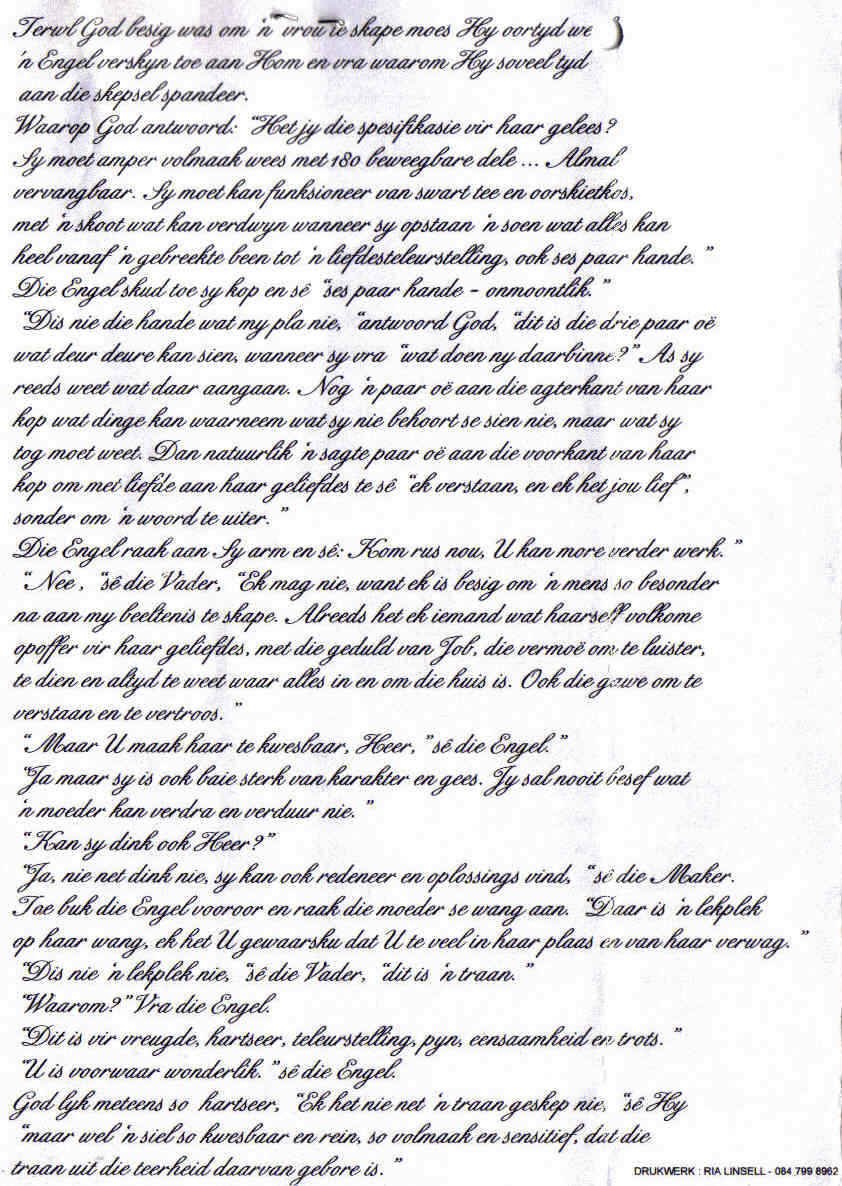 Terwl God besig was om 'n vrou te skape moes Hy oortyd we
'n Engel verskyn toe aan Hom en vra waarom Hy soveel tyd
aan die skepsel spandeer.
Waarop God antwoord: "Het jy die spesifikasie vir haar gelees?
Sy moet amper volmaak wees met 180 beweegbare dele ... Almal
vervangbaar. Sy moet kan funksioneer van swart tee en oorskietkos,
met 'n skoot wat kan verdwyn wanneer sy opstaan 'n soen wat alles kan
heel vanaf 'n gebreekte been tot 'n liefdesteleurstelling, ook ses paar hande."
Die Engel skud toe sy kop en sê "ses paar hande - onmoontlik."
"Dis nie die hande wat my pla nie, "antwoord God, "dit is die drie paar oë
wat deur deure kan sien, wanneer sy vra "wat doen ny daarbinne?" As sy
reeds weet wat daar aangaan. Nog 'n paar oë aan die agterkant van haar
kop wat dinge kan waarneem wat sy nie behoort se sien nie, maar wat sy
tog moet weet. Dan natuurlik 'n sagte paar oë aan die voorkant van haar
kop om met liefde aan haar geliefdes te sê "ek verstaan, en ek het jou lief",
sonder om 'n woord te uiter."
Die Engel raak aan Sy arm en sê: Kom rus nou, U kan more verder werk."
"Nee, "sê die Vader, "Ek mag nie, want ek is besig om 'n mens so besonder
na aan my beeltenis te skape. Alreeds het ek iemand wat haarself volkome
opoffer vir haar geliefdes, met die geduld van Job, die vermoë om te luister,
te dien en altyd te weet waar alles in en om die huis is. Ook die gawe om te
verstaan en te vertroos."
"Maar U maak haar te kwesbaar, Heer," sê die Engel."
"Ja maar sy is ook baie sterk van karakter en gees. Jy sal nooit besef wat
'n moeder kan verdra en verduur nie."
"Kan sy dink ook Heer?"
"Ja, nie net dink nie, sy kan ook redeneer en oplossings vind, "sê die Maker.
Toe buk die Engel vooroor en raak die moeder se wang aan. "Daar is 'n lekplek
op haar wang, ek het U gewaarsku dat U te veel in haar plaas en van haar verwag."
"Dis nie 'n lekplek nie, "sê die Vader, "dit is 'n traan."
"Waarom?" Vra die Engel.
"Dit is vir vreugde, hartseer, teleurstelling, pyn, eensaamheid en trots."
"U is voorwaar wonderlik." sê die Engel.
God lyk meteens so hartseer, "Ek het nie net 'n traan geskep nie, "sê Hy
"maar wel 'n siel so kwesbaar en rein, so volmaak en sensitief, dat die
traan uit die teerheid daarvan gebore is."
DRUKWERK : RIA LINSELL - 084 799 8962